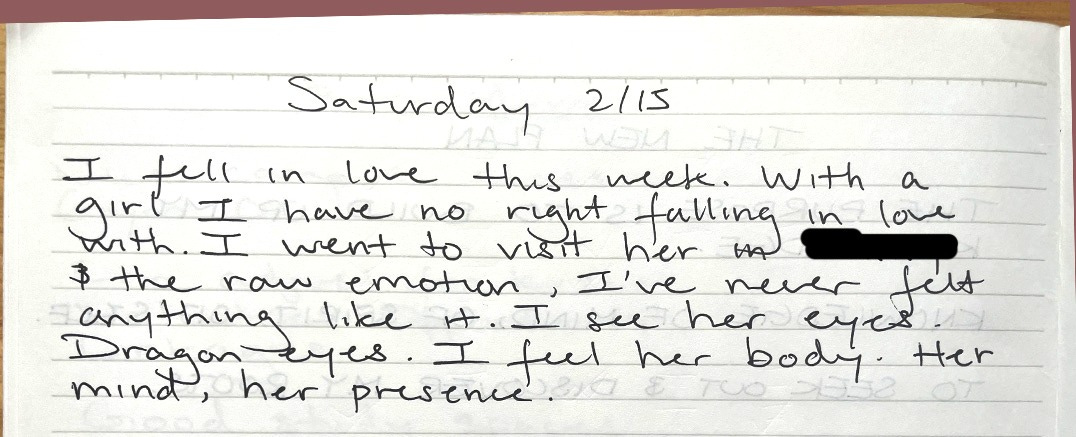 Saturday 2/15
I fell in love this week. With a
girl I have no right falling in love
with. I went to visit her in
$ the raw emotion, I've never felt
anything like it. I see her eyes.
Dragon eyes. I feel her body. Her
mind, her presence.
THE NEW PLAN